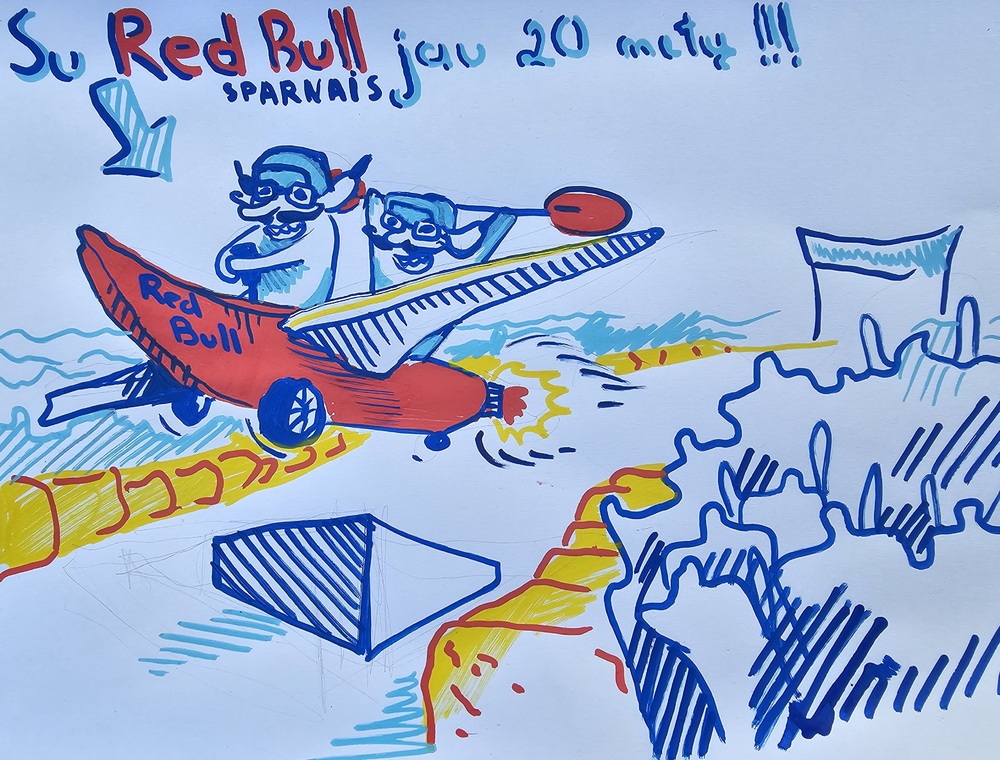 Su Red Bull jau 20 metų !!!
SPARNAIS
Red
Bull